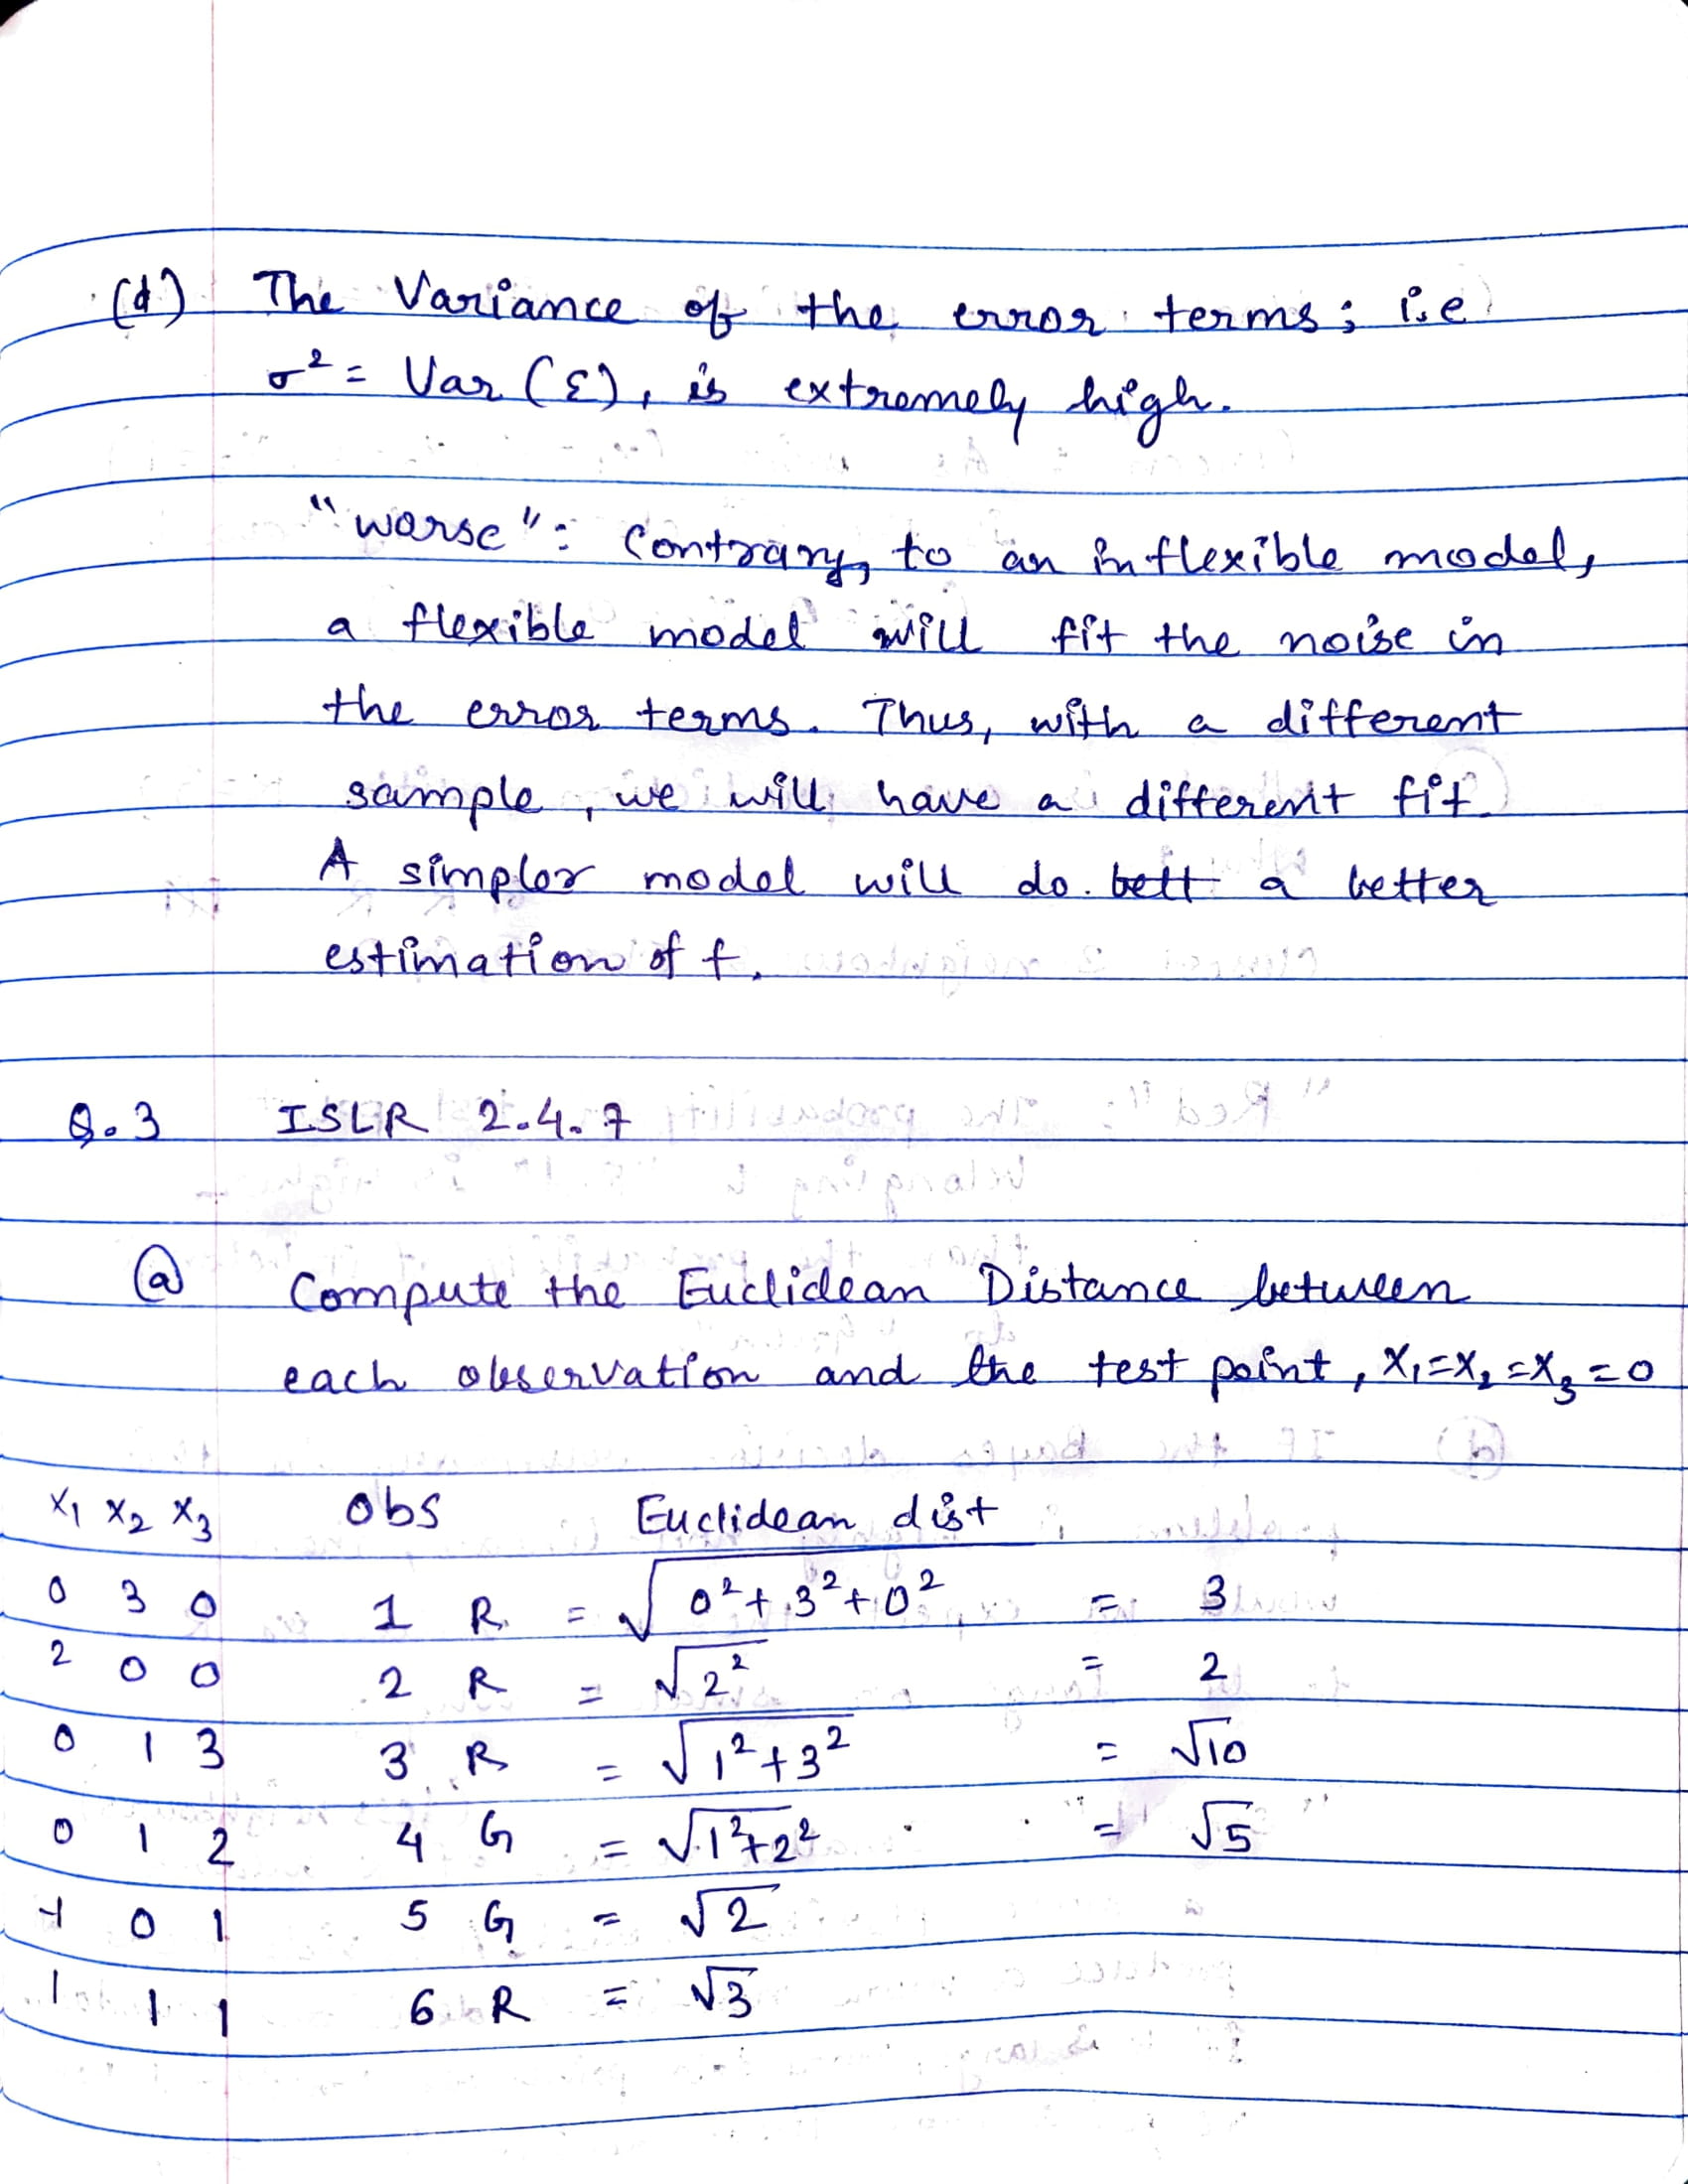 (d) The Variance of the error terms; i.e
σ² = Var (ε), is extremely high.
"worse": Contrary, to an inflexible model,
a flexible model will fit the noise in
the error terms. Thus, with a different
sample, we will have a different fit.
A simpler model will do bett a better
estimation of f.
Q.3 ISLR 2.4.7
(a) Compute the Euclidean Distance between
each observation and the test point, X₁=X₂=X₃=0
X₁ X₂ X₃ Obs Euclidean dist
0 3 0 1 R = √0²+3²+0² = 3
2 0 0 2 R = √2² = 2
0 1 3 3 R = √1²+3² = √10
0 1 2 4 G = √1²+2² = √5
-1 0 1 5 G = √2
1 1 1 6 R = √3